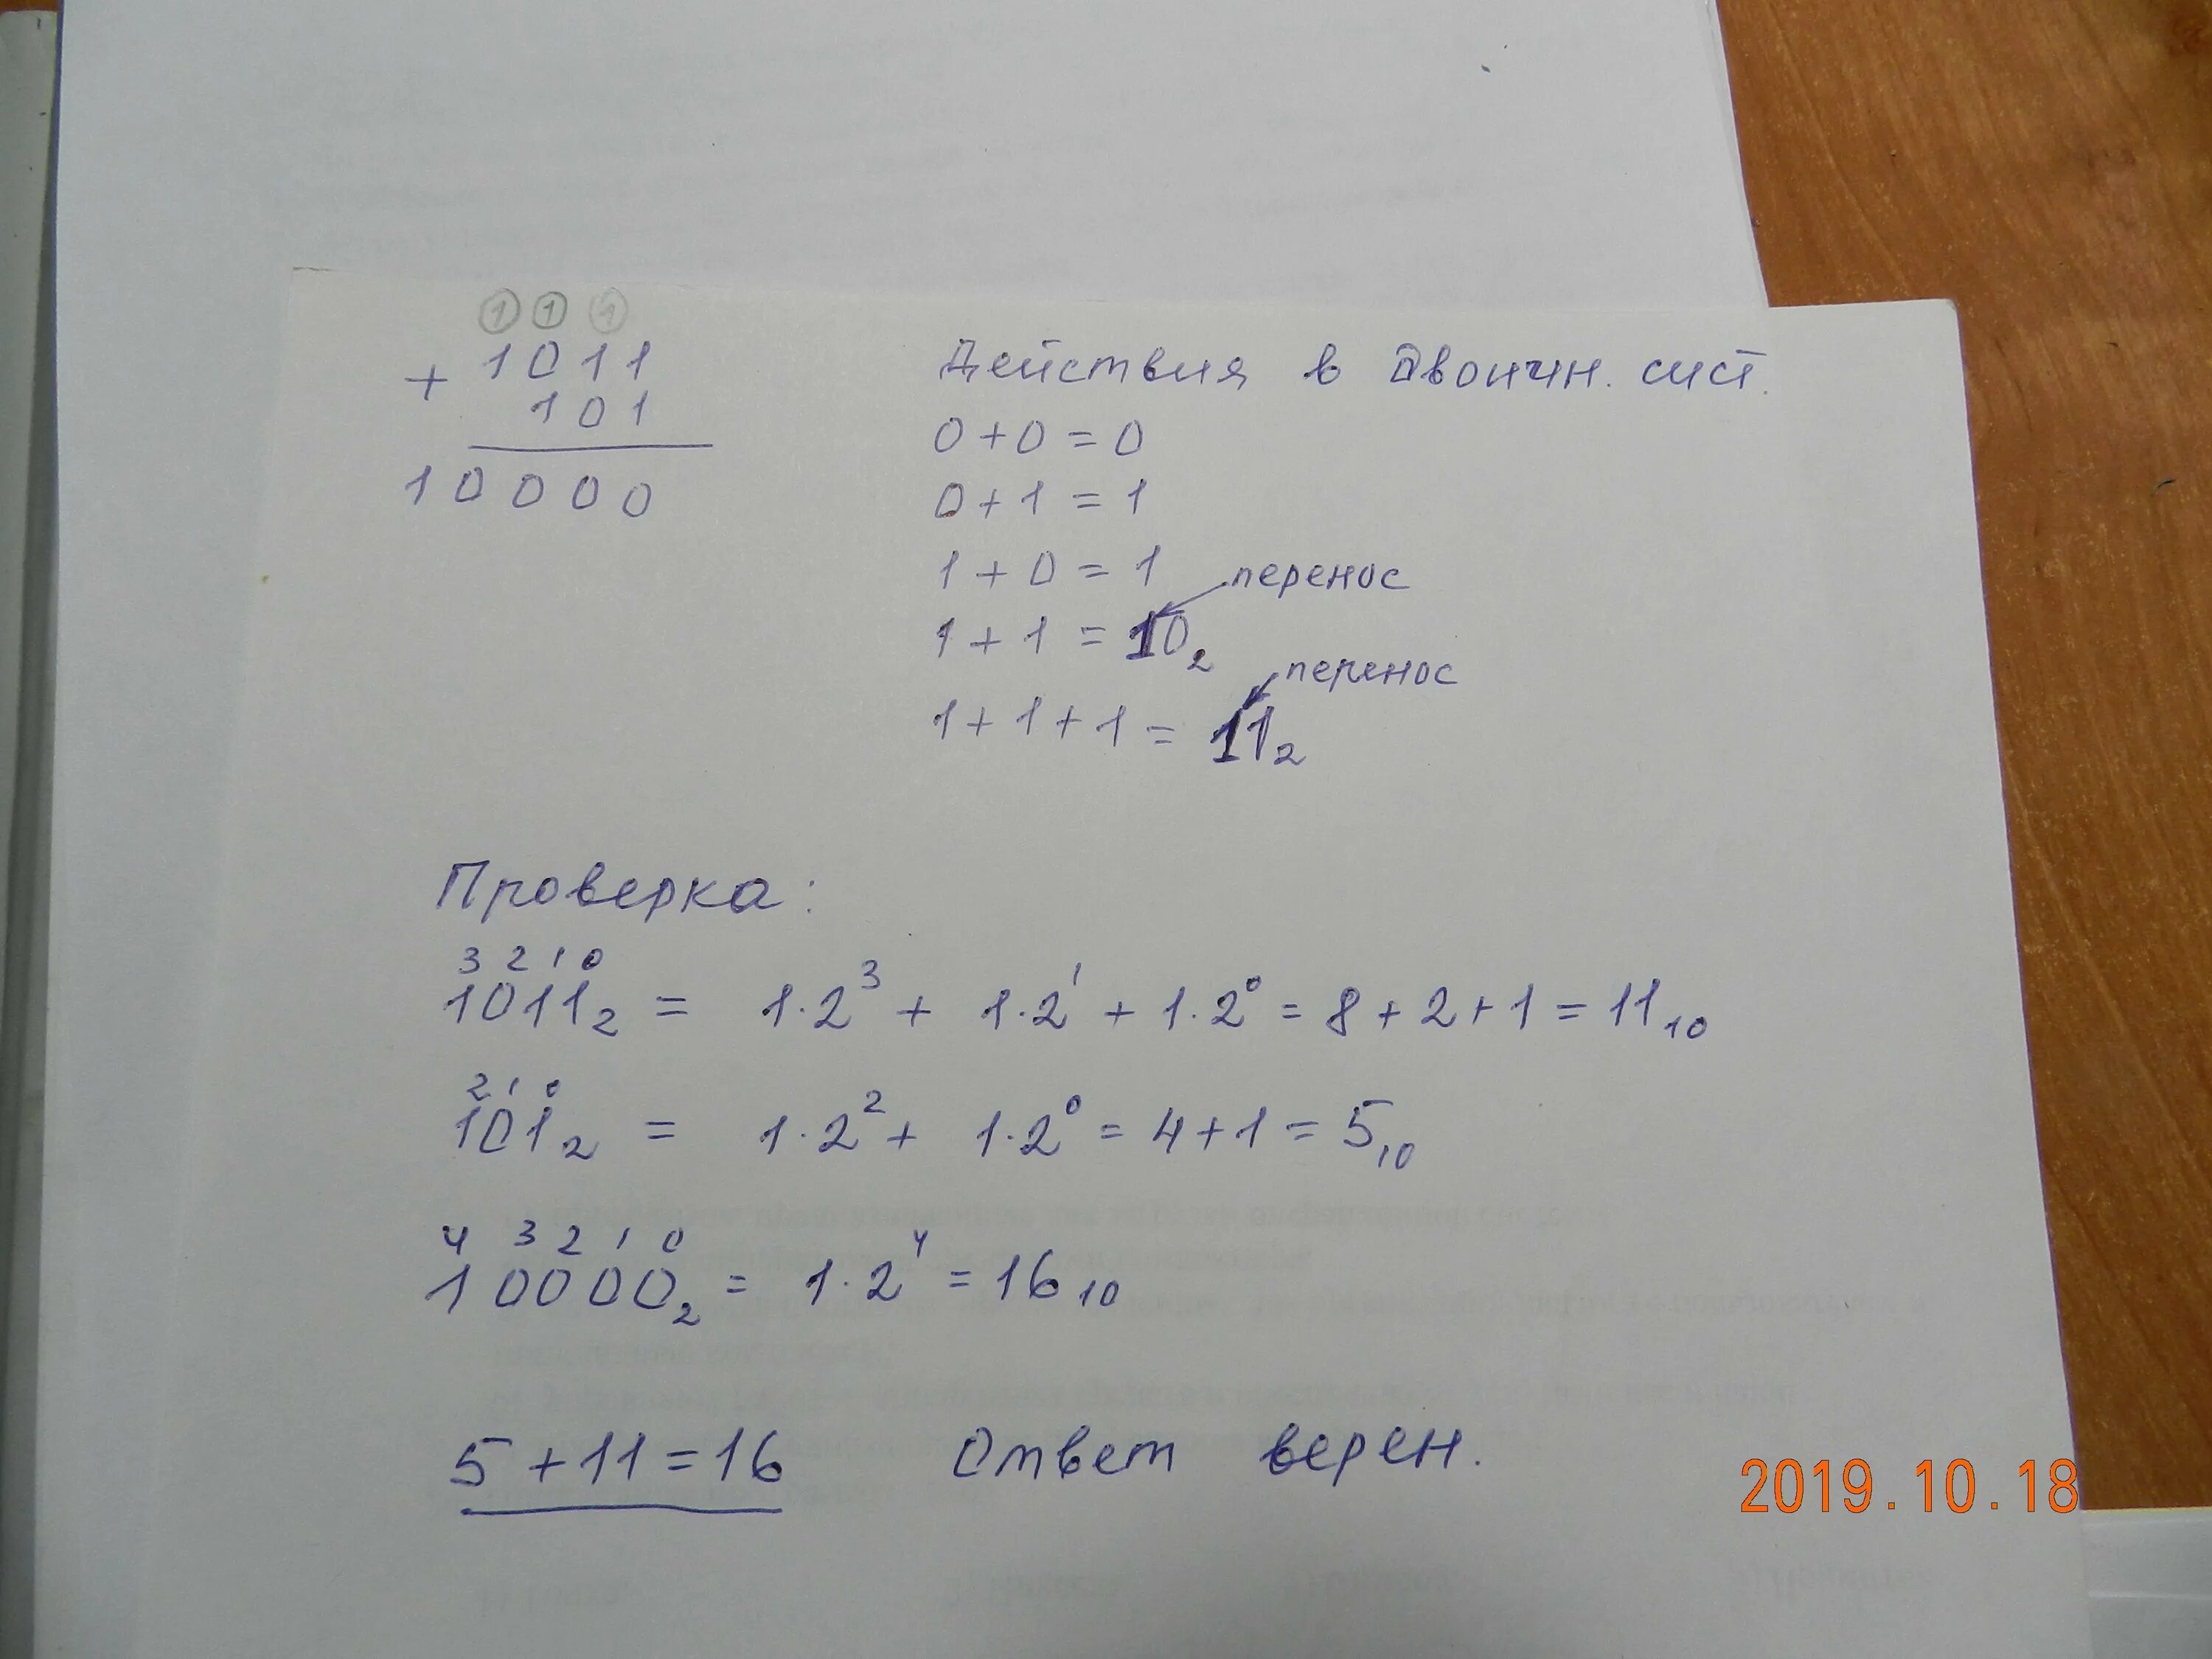 ① ① ①
+ 1011
101
10000
Действия в двоичн. сист.
0+0=0
0+1=1
1+0=1
перенос
1+1=10₂
перенос
1+1+1=11₂
Проверка:
3 2 1 0
1011₂ = 1·2³ + 1·2¹ + 1·2⁰ = 8+2+1 = 11₁₀
2 1 0
101₂ = 1·2² + 1·2⁰ = 4+1 = 5₁₀
4 3 2 1 0
10000₂ = 1·2⁴ = 16₁₀
5+11=16 Ответ верен.
2019.10.18